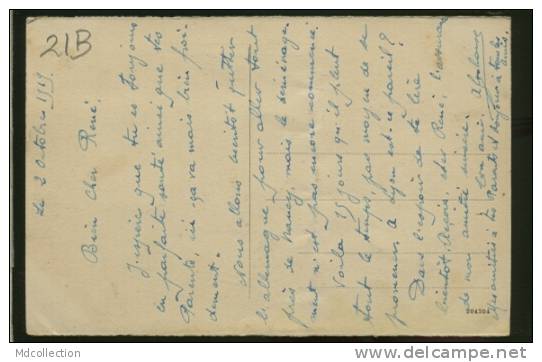 21B
Le 2 Octobre 1919
Bien Cher René.
J'espère que tu es toujours
en parfaite santé ainsi que tes
Parents, ici ça va mais bien froi-
dement.
Nous allons bientôt quitter
l'allemagne pour aller tout
près de Nancy, mais le déménage-
ment n'est pas encore commencé.
Voila 15 jours qu'il pleut
tout le temps, pas moyen de se
promener, à Lyon est-ce pareil?
Dans l'espoir de te lire
bientôt, Reçois, cher René,
de mon amitié sincère.
Ton ami.
Mes amitiés à tes Parents et bonjour à tous les
amis.
204304
Mdcollection
http://www.delcampe.net